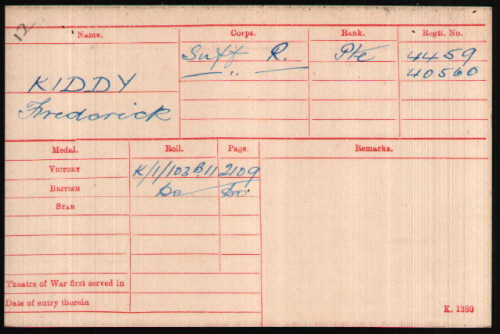 12
Name. Corps. Rank. Regtl. No.
Suff R. Pte 4459
" 40560
KIDDY
Frederick
Medal. Roll. Page. Remarks.
VICTORY K/1/103B11 2109
BRITISH Do Do
STAR
Theatre of War first served in
Date of entry therein
K. 1380